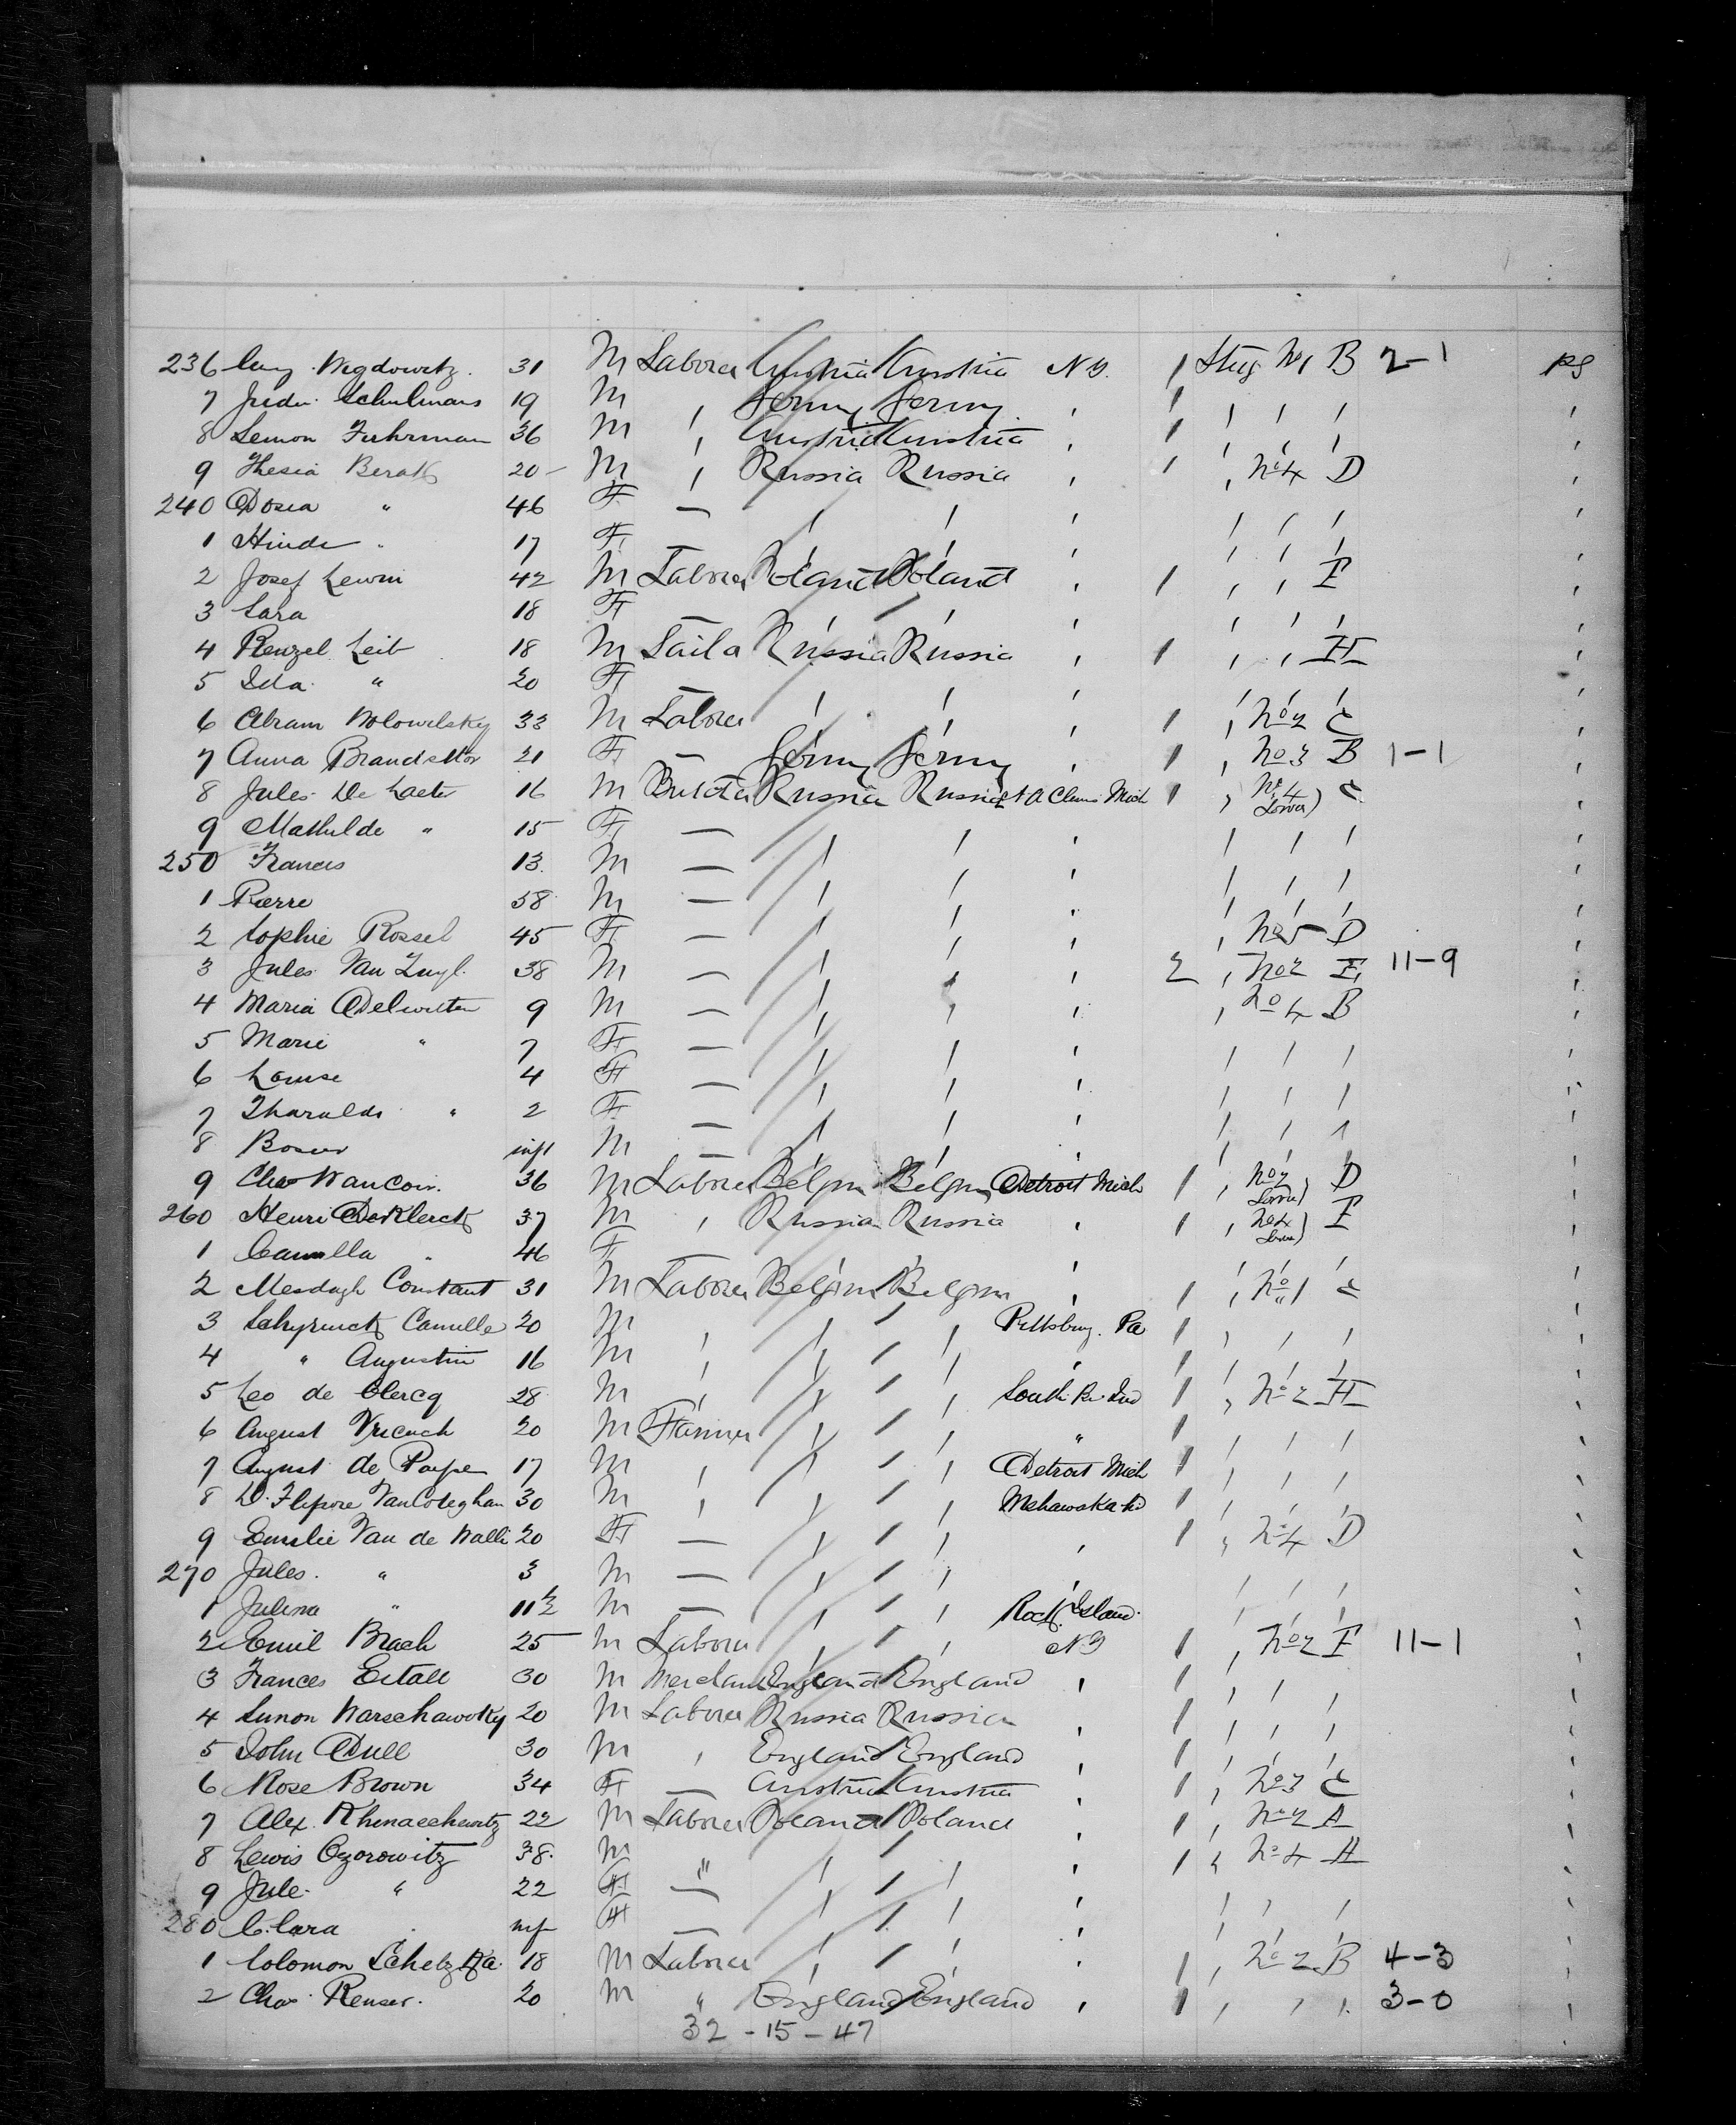 236 Aug. Wegdowitz. 31 M Laborer Austria Austria N.Y. 1 Steg No 1 B 2-1 pg
7 Schulmans 19 M , Germy Germy , 1 , , ,
8 Semon Fuhrman 36 M , Austria Austria , 1 , , ,
9 Thesia Berak 20 - M , Russia Russia , 1 , No 4 D
240 Dosia " 46 F — , , , , , ,
1 Hinde " 17 F , , , , , ,
2 Josef Lewin 42 M Laborer Poland Poland , 1 , , F
3 Sara 18 F — , , , , , ,
4 Renzel Leib 18 M Tailor Russia Russia , 1 , , H
5 Ida " 20 F — , , , , , ,
6 Abram Wolowilsky 33 M Laborer , , , 1 , No 2 C
7 Anna Brandsttor 21 F — Germy Germy , 1 , No 3 B 1-1
8 Jules De Laeter 16 M Russia Russia Mich 1 , No 4 C
9 Mathilde " 15 F — , , , , , ,
250 Francis 13 M — , , , , , ,
1 Pierre 58 M — , , , , , ,
2 Sophie Rossel 45 F — , , , , No 5 D
3 Jules Van Zuyl. 38 M — , , , 2 , No 2 F 11-9
4 Maria Delwitten 9 M — , , , , No 4 B
5 Marie " 7 F — , , , , , ,
6 Louise 4 F — , , , , , ,
7 " 2 F — , , , , , ,
8 inft M — , , , , , ,
9 Chas Wancoir. 36 M Laborer Belgm Belgm Detroit Mich 1 , No 2 D
260 Henri DeKlerck 37 M , Russia Russia , 1 , No 4 F
1 Camilla " 46 F — , , , , , ,
2 Mesdagh Constant 31 M Laborer Belgim Belgim , 1 , No 1 C
3 Camille 20 M , , , Pittsburg. Pa 1 , , ,
4 " Augustin 16 M , , , , 1 , , ,
5 Leo de Clercq 28 M , , , South Be. Ind 1 , No 2 H
6 August 20 M Farmer , , " 1 , , ,
7 August de Paepe 17 M , , , Detroit Mich 1 , , ,
8 30 M , , , 1 , , ,
9 Emilie Van de Walle 20 F — , , , 1 , No 4 D
270 Jules. " 3 M — , , , , , ,
1 Julina " 11½ M — , , Rock Island. , , ,
2 Emil Brach 25 M Laborer , , N.Y 1 , No 2 F 11-1
3 Frances Estall 30 M Merchant England England , 1 , , ,
4 Simon Warschawsky 20 M Laborer Russia Russia , 1 , , ,
5 John Dull 30 M , England England , 1 , , ,
6 Rose Brown 34 F — Austria Austria , 1 , No 3 C
7 Alex. 22 M Laborer Poland Poland , 1 , No 2 A
8 Lewis Ogorowitz 38. M " , , , 1 , No 4 H
9 Jule " 22 F — , , , , , ,
280 Clara inf F — , , , , , ,
1 Solomon 18 M Laborer , , , 1 , No 2 B 4-3
2 Chas. Renser. 20 M " England England , 1 , , , 3-0
32 - 15 - 47